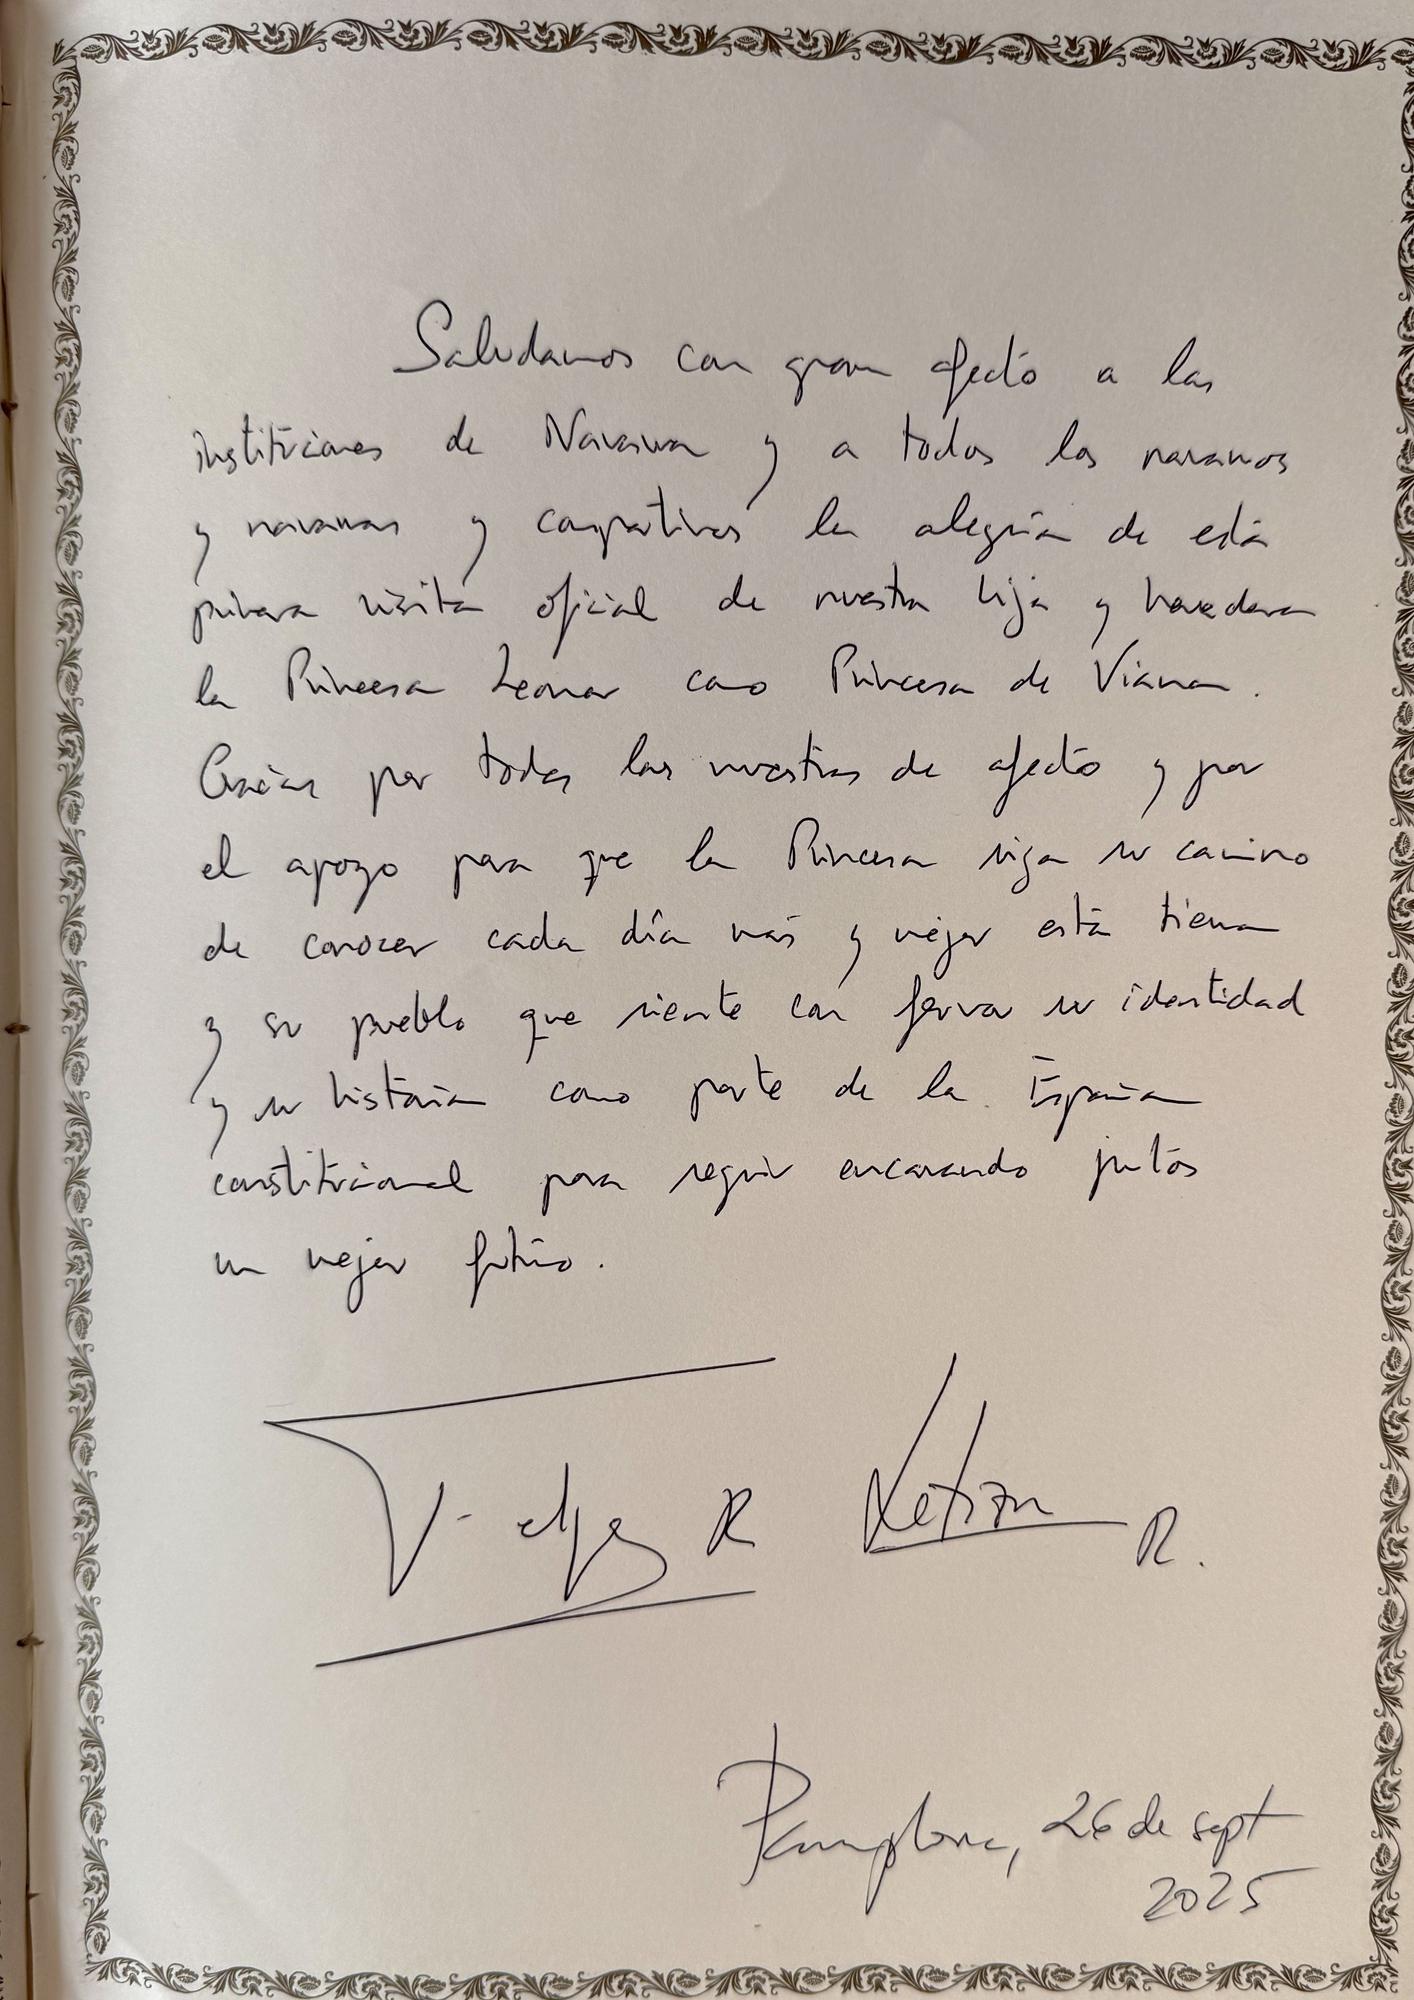 Saludamos con gran afecto a las
instituciones de Navarra y a todos los navarros
y navarras y compartimos la alegría de esta
primera visita oficial de nuestra hija y heredera
la Princesa Leonor como Princesa de Viana.
Gracias por todas las muestras de afecto y por
el apoyo para que la Princesa siga su camino
de conocer cada día más y mejor esta tierra
y su pueblo que siente con fervor su identidad
y su historia como parte de la España
constitucional para seguir encarando juntos
un mejor futuro.
Felipe R Letizia R.
Pamplona, 26 de sept
2025